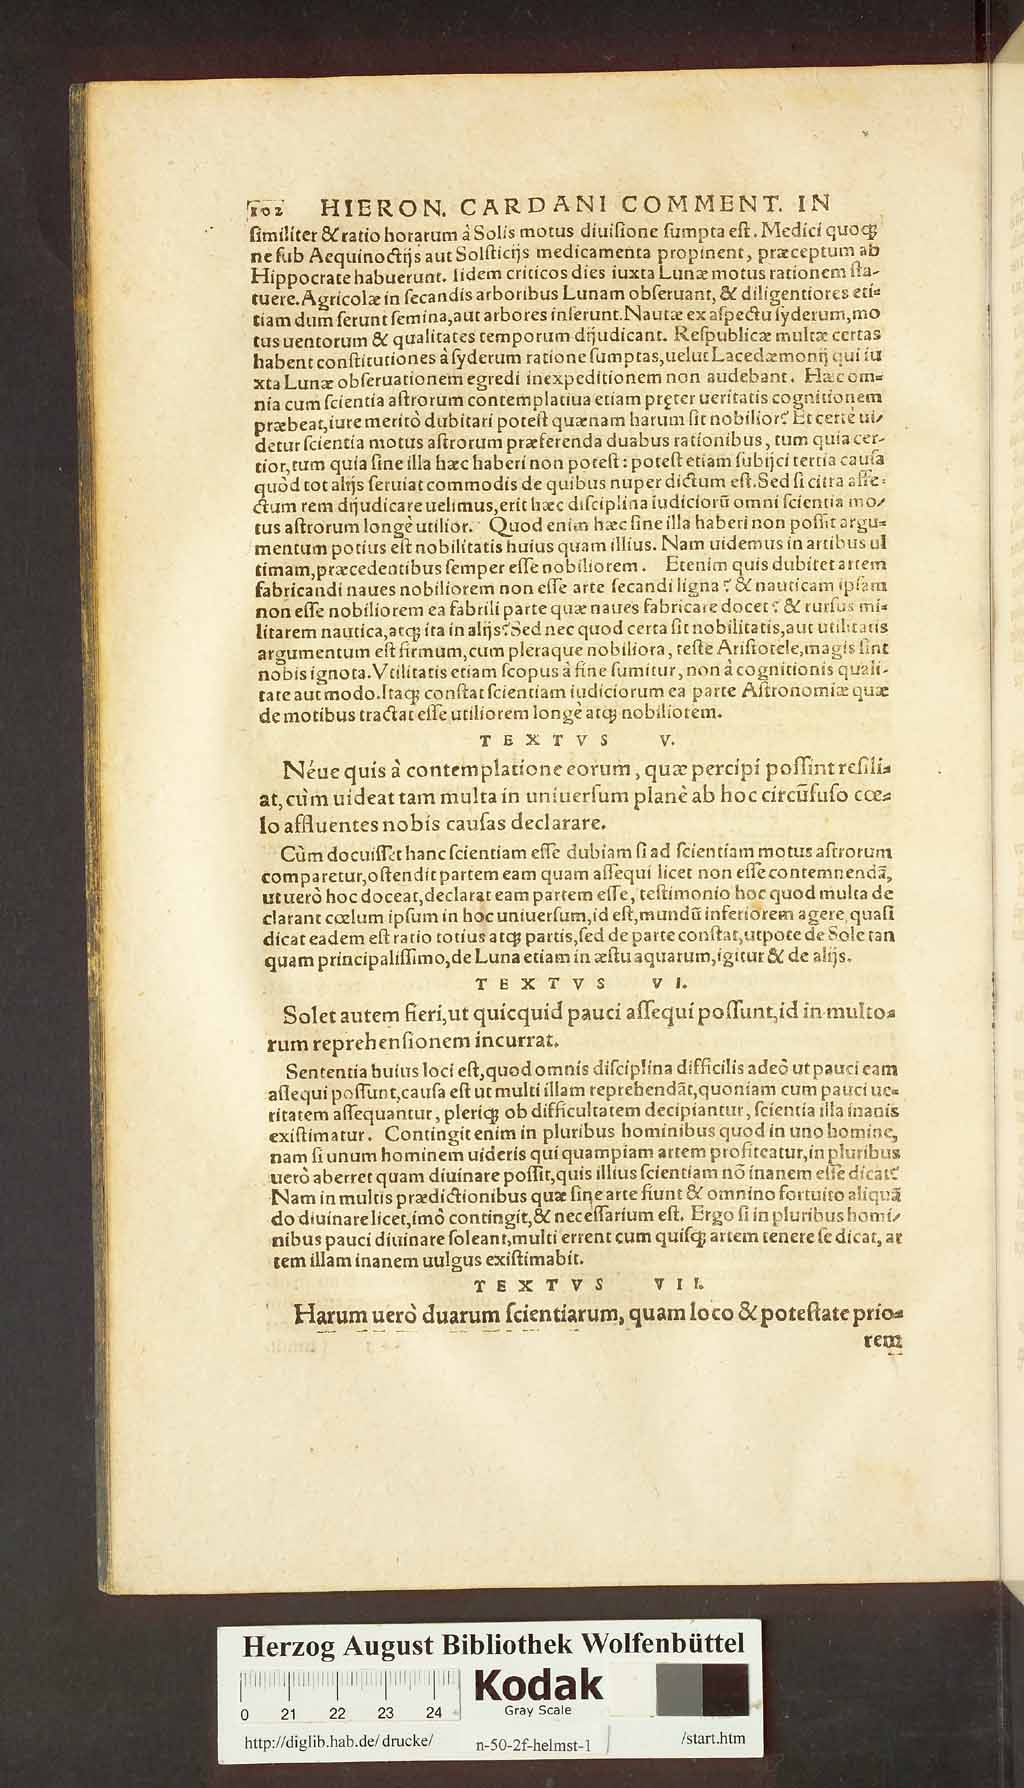 102 HIERON. CARDANI COMMENT. IN
ſimiliter & ratio horarum à Solis motus diuiſione ſumpta eſt. Medici quoq;
ne ſub Aequinoctijs aut Solſticijs medicamenta propinent, præceptum ab
Hippocrate habuerunt. Iidem criticos dies iuxta Lunæ motus rationem ſta-
tuere. Agricolæ in ſecandis arboribus Lunam obſeruant, & diligentiores eti-
tiam dum ſerunt ſemina, aut arbores inſerunt. Nautæ ex aſpectu ſyderum, mo
tus uentorum & qualitates temporum dijudicant. Reſpublicæ multæ certas
habent conſtitutiones à ſyderum ratione ſumptas, uelut Lacedæmonij qui iu
xta Lunæ obſeruationem egredi inexpeditionem non audebant. Hæc om-
nia cum ſcientia aſtrorum contemplatiua etiam pręter ueritatis cognitionem
præbeat, iure meritò dubitari poteſt quænam harum ſit nobilior? Et certè ui-
detur ſcientia motus aſtrorum præferenda duabus rationibus, tum quia cer-
tior, tum quia ſine illa hæc haberi non poteſt: poteſt etiam ſubijci tertia cauſa
quòd tot alijs ſeruiat commodis de quibus nuper dictum eſt. Sed ſi citra affe-
ctum rem dijudicare uelimus, erit hæc diſciplina iudiciorũ omni ſcientia mo-
tus aſtrorum longè utilior. Quod enim hæc ſine illa haberi non poſſit argu-
mentum potius eſt nobilitatis huius quam illius. Nam uidemus in artibus ul
timam, præcedentibus ſemper eſſe nobiliorem. Etenim quis dubitet artem
fabricandi naues nobiliorem non eſſe arte ſecandi ligna? & nauticam ipſam
non eſſe nobiliorem ea fabrili parte quæ naues fabricare docet? & rurſus mi-
litarem nautica, atq; ita in alijs? Sed nec quod certa ſit nobilitatis, aut utilitatis
argumentum eſt firmum, cum pleraque nobiliora, teſte Ariſtotele, magis ſint
nobis ignota. Vtilitatis etiam ſcopus à fine ſumitur, non à cognitionis quali-
tate aut modo. Itaq; conſtat ſcientiam iudiciorum ea parte Aſtronomiæ quæ
de motibus tractat eſſe utiliorem longè atq; nobiliorem.
TEXTVS V.
Néue quis à contemplatione eorum, quæ percipi poſſint reſili-
at, cùm uideat tam multa in uniuerſum planè ab hoc circũfuſo cœ-
lo affluentes nobis cauſas declarare.
Cùm docuiſſet hanc ſcientiam eſſe dubiam ſi ad ſcientiam motus aſtrorum
comparetur, oſtendit partem eam quam aſſequi licet non eſſe contemnendã,
ut uerò hoc doceat, declarat eam partem eſſe, teſtimonio hoc quod multa de
clarant cœlum ipſum in hoc uniuerſum, id eſt, mundũ inferiorem agere, quaſi
dicat eadem eſt ratio totius atq; partis, ſed de parte conſtat, utpote de Sole tan
quam principaliſſimo, de Luna etiam in æſtu aquarum, igitur & de alijs.
TEXTVS VI.
Solet autem fieri, ut quicquid pauci aſſequi poſſunt, id in multo-
rum reprehenſionem incurrat.
Sententia huius loci eſt, quod omnis diſciplina difficilis adeò ut pauci eam
aſſequi poſſunt, cauſa eſt ut multi illam reprehendãt, quoniam cum pauci ue-
ritatem aſſequantur, pleriq; ob difficultatem decipiantur, ſcientia illa inanis
exiſtimatur. Contingit enim in pluribus hominibus quod in uno homine,
nam ſi unum hominem uideris qui quampiam artem profiteatur, in pluribus
uerò aberret quam diuinare poſſit, quis illius ſcientiam nõ inanem eſſe dicat?
Nam in multis prædictionibus quæ ſine arte fiunt & omnino fortuito aliquã
do diuinare licet, imò contingit, & neceſſarium eſt. Ergo ſi in pluribus homi-
nibus pauci diuinare ſoleant, multi errent cum quiſq; artem tenere ſe dicat, ar
tem illam inanem uulgus exiſtimabit.
TEXTVS VII.
Harum uerò duarum ſcientiarum, quam loco & poteſtate prio-
rem
Herzog August Bibliothek Wolfenbüttel
0 21 22 23 24
Kodak
Gray Scale
http://diglib.hab.de/drucke/ n-50-2f-helmst-1 /start.htm